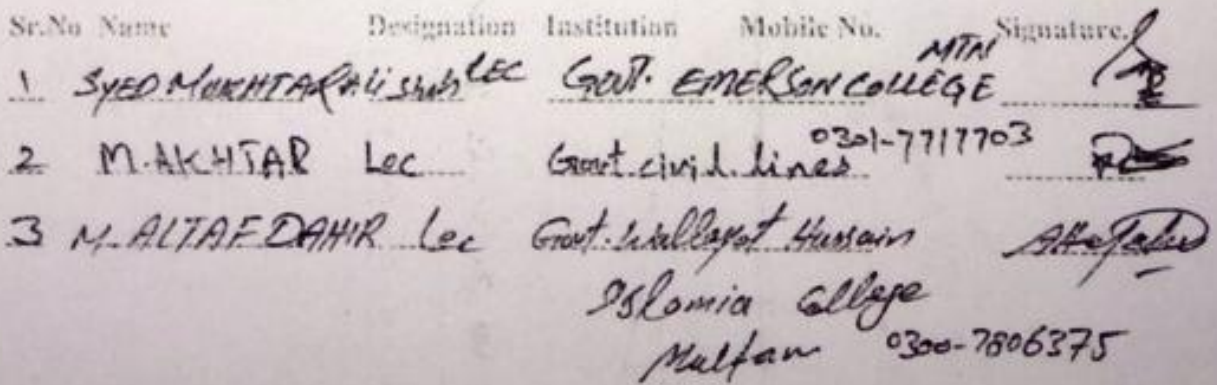 Sr.No Name Designation Institution Mobile No. Signature.
1 SYED MUKHTAR Ali Shah LEC Govt. EMERSON COLLEGE MTN
2 M.AKHTAR Lec Govt. civil lines 0301-7717703
3 M. ALTAF DAHIR Lec Govt. Wallayat Hussain
Islamia College
Multan 0300-7806375